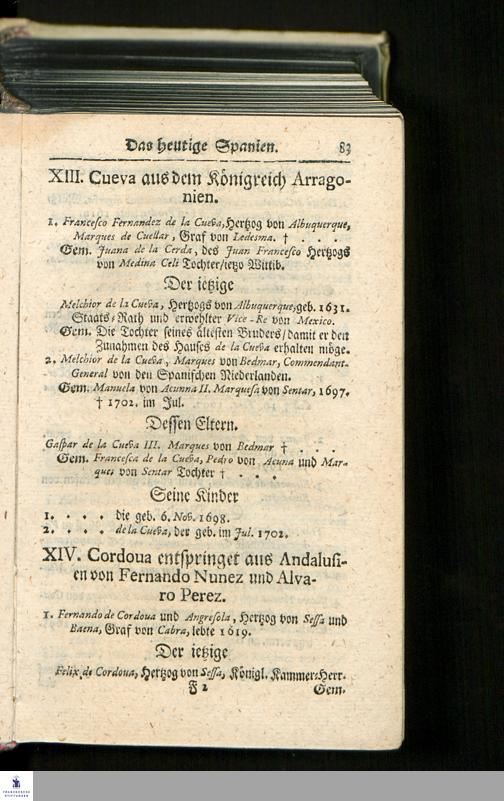 Das heutige Spanien. 83
XIII. Cueva aus dem Königreich Arrago-
nien.
1. Francesco Fernandez de la Cueva, Hertzog von Albuquerque,
Marques de Cuellar, Graf von Ledesma. † . . .
Gem. Juana de la Cerda, des Juan Francesco Hertzogs
von Medina Celi Tochter/ ietzo Wittib.
Der ietzige
Melchior de la Cueva, Hertzogs von Albuquerque, geb. 1631.
Staats-Rath und erwehlter Vice-Re von Mexico.
Gem. Die Tochter seines ältesten Bruders/ damit er den
Zunahmen des Hauses de la Cueva erhalten möge.
2. Melchior de la Cueva, Marques von Bedmar, Commendant-
General von den Spanischen Niederlanden.
Gem. Manuela von Acunna II. Marquesa von Sentar, 1697.
† 1702. im Jul.
Dessen Eltern.
Gaspar de la Cueva III. Marques von Bedmar † . . .
Gem. Francesca de la Cueva, Pedro von Acuna und Mar-
ques von Sentar Tochter † . . .
Seine Kinder
1. . . . die geb. 6. Nov. 1698.
2. . . . de la Cueva, der geb. im Jul. 1702.
XIV. Cordoua entspringet aus Andalusi-
en von Fernando Nunez und Alva-
ro Perez.
1. Fernando de Cordoua und Angresola, Hertzog von Sessa und
Baena, Graf von Cabra, lebte 1619.
Der ietzige
Felix de Cordoua, Hertzog von Sessa, Königl. Kammer-Herr.
F 2 Gem.
FRANCKESCHE
STIFTUNGEN